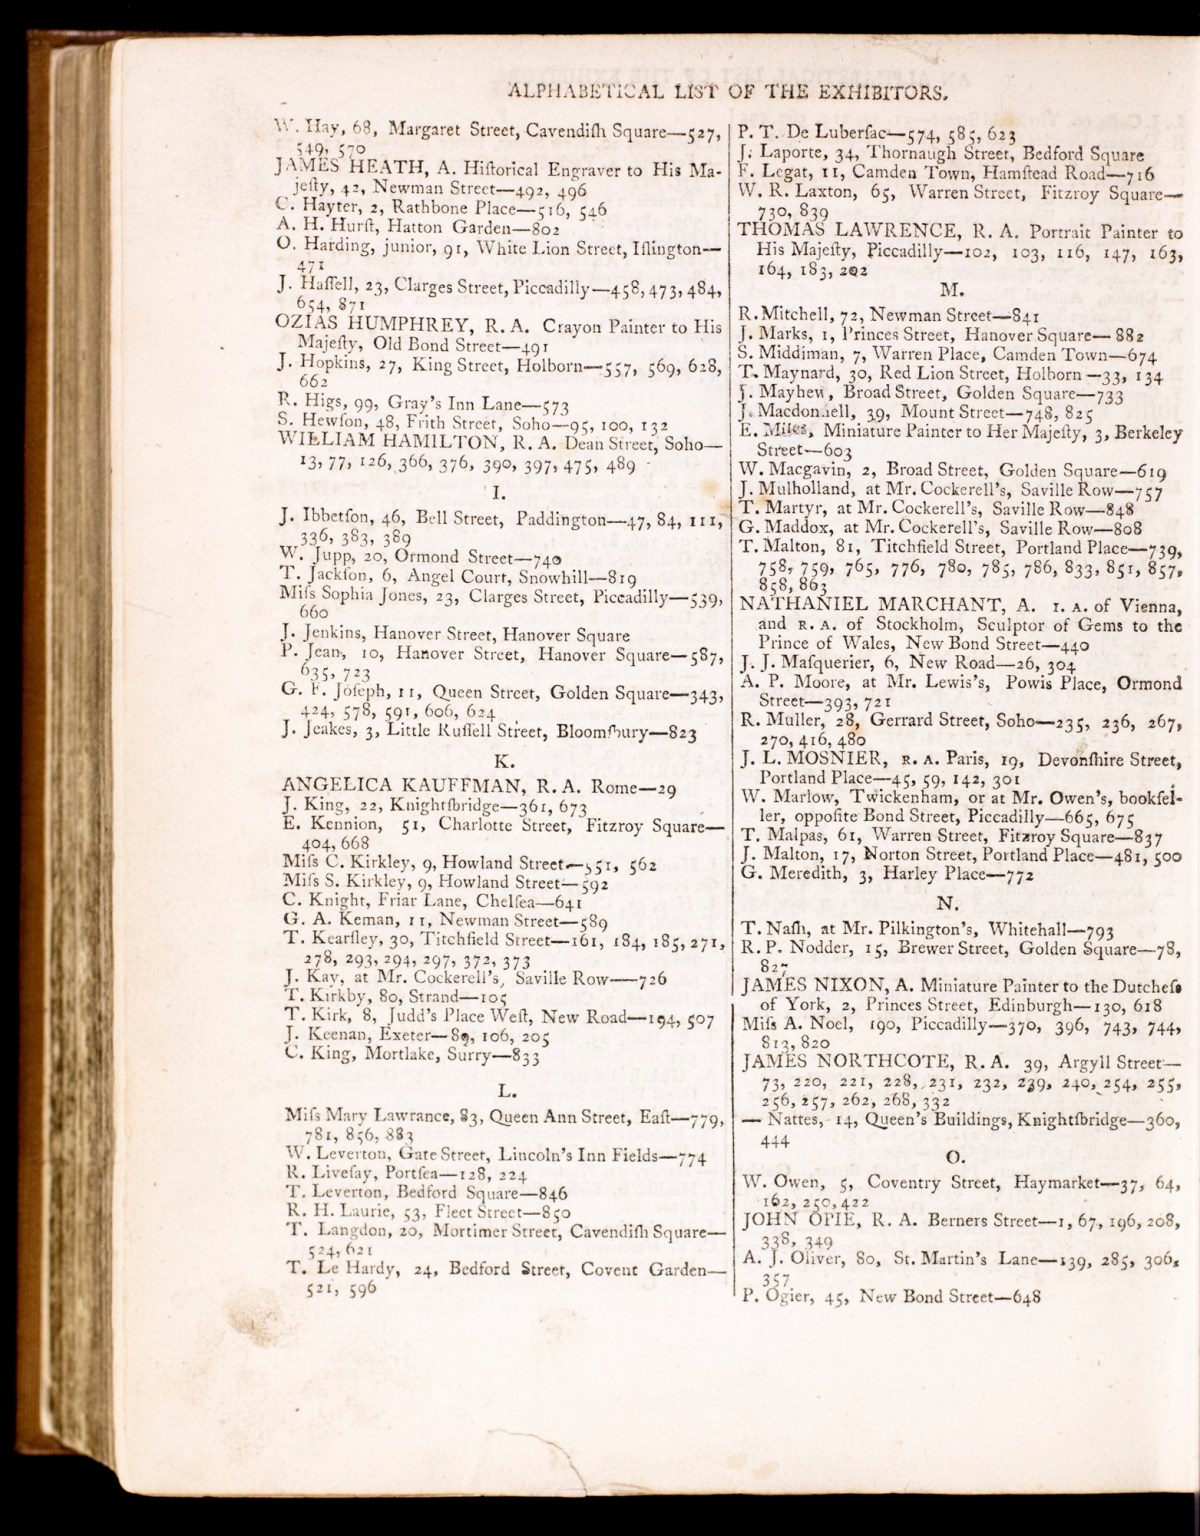 ALPHABETICAL LIST OF THE EXHIBITORS.
W. Hay, 68, Margaret Street, Cavendiſh Square—527,
549, 570
JAMES HEATH, A. Hiſtorical Engraver to His Ma-
jeſty, 42, Newman Street—492, 496
C. Hayter, 2, Rathbone Place—516, 546
A. H. Hurſt, Hatton Garden—802
O. Harding, junior, 91, White Lion Street, Iſlington—
471
J. Haſſell, 23, Clarges Street, Piccadilly—458, 473, 484,
654, 871
OZIAS HUMPHREY, R. A. Crayon Painter to His
Majeſty, Old Bond Street—491
J. Hopkins, 27, King Street, Holborn—557, 569, 628,
662
R. Higs, 99, Gray's Inn Lane—573
S. Hewſon, 48, Frith Street, Soho—95, 100, 132
WILLIAM HAMILTON, R. A. Dean Street, Soho—
13, 77, 126, 366, 376, 390, 397, 475, 489
I.
J. Ibbetſon, 46, Bell Street, Paddington—47, 84, 111,
336, 383, 389
W. Jupp, 20, Ormond Street—740
T. Jackſon, 6, Angel Court, Snowhill—819
Miſs Sophia Jones, 23, Clarges Street, Piccadilly—539,
660
J. Jenkins, Hanover Street, Hanover Square
P. Jean, 10, Hanover Street, Hanover Square—587,
635, 723
G. F. Joſeph, 11, Queen Street, Golden Square—343,
424, 578, 591, 606, 624
J. Jeakes, 3, Little Ruſſell Street, Bloomſbury—823
K.
ANGELICA KAUFFMAN, R. A. Rome—29
J. King, 22, Knightſbridge—361, 673
E. Kennion, 51, Charlotte Street, Fitzroy Square—
404, 668
Miſs C. Kirkley, 9, Howland Street—551, 562
Miſs S. Kirkley, 9, Howland Street—592
C. Knight, Friar Lane, Chelſea—641
G. A. Keman, 11, Newman Street—589
T. Kearſley, 30, Titchfield Street—161, 184, 185, 271,
278, 293, 294, 297, 372, 373
J. Kay, at Mr. Cockerell's, Saville Row—726
T. Kirkby, 80, Strand—105
T. Kirk, 8, Judd's Place Weſt, New Road—194, 507
J. Keenan, Exeter—89, 106, 205
C. King, Mortlake, Surry—833
L.
Miſs Mary Lawrance, 83, Queen Ann Street, Eaſt—779,
781, 856, 883
W. Leverton, Gate Street, Lincoln's Inn Fields—774
R. Liveſay, Portſea—128, 224
T. Leverton, Bedford Square—846
R. H. Laurie, 53, Fleet Street—850
T. Langdon, 20, Mortimer Street, Cavendiſh Square—
524, 621
T. Le Hardy, 24, Bedford Street, Covent Garden—
521, 596
P. T. De Luberſac—574, 585, 623
J. Laporte, 34, Thornaugh Street, Bedford Square
F. Legat, 11, Camden Town, Hamſtead Road—716
W. R. Laxton, 65, Warren Street, Fitzroy Square—
730, 839
THOMAS LAWRENCE, R. A. Portrait Painter to
His Majeſty, Piccadilly—102, 103, 116, 147, 163,
164, 183, 202
M.
R. Mitchell, 72, Newman Street—841
J. Marks, 1, Princes Street, Hanover Square—882
S. Middiman, 7, Warren Place, Camden Town—674
T. Maynard, 30, Red Lion Street, Holborn—33, 134
J. Mayhew, Broad Street, Golden Square—733
J. Macdonnell, 39, Mount Street—748, 825
E. Miles, Miniature Painter to Her Majeſty, 3, Berkeley
Street—603
W. Macgavin, 2, Broad Street, Golden Square—619
J. Mulholland, at Mr. Cockerell's, Saville Row—757
T. Martyr, at Mr. Cockerell's, Saville Row—848
G. Maddox, at Mr. Cockerell's, Saville Row—808
T. Malton, 81, Titchfield Street, Portland Place—739,
758, 759, 765, 776, 780, 785, 786, 833, 851, 857,
858, 863
NATHANIEL MARCHANT, A. I. A. of Vienna,
and R. A. of Stockholm, Sculptor of Gems to the
Prince of Wales, New Bond Street—440
J. J. Maſquerier, 6, New Road—26, 304
A. P. Moore, at Mr. Lewis's, Powis Place, Ormond
Street—393, 721
R. Muller, 28, Gerrard Street, Soho—235, 236, 267,
270, 416, 480
J. L. MOSNIER, R. A. Paris, 19, Devonſhire Street,
Portland Place—45, 59, 142, 301
W. Marlow, Twickenham, or at Mr. Owen's, bookſel-
ler, oppoſite Bond Street, Piccadilly—665, 675
T. Malpas, 61, Warren Street, Fitzroy Square—837
J. Malton, 17, Norton Street, Portland Place—481, 500
G. Meredith, 3, Harley Place—772
N.
T. Naſh, at Mr. Pilkington's, Whitehall—793
R. P. Nodder, 15, Brewer Street, Golden Square—78,
827
JAMES NIXON, A. Miniature Painter to the Dutcheſs
of York, 2, Princes Street, Edinburgh—130, 618
Miſs A. Noel, 190, Piccadilly—370, 396, 743, 744,
813, 820
JAMES NORTHCOTE, R. A. 39, Argyll Street—
73, 220, 221, 228, 231, 232, 239, 240, 254, 255,
256, 257, 262, 268, 332
— Nattes, 14, Queen's Buildings, Knightſbridge—360,
444
O.
W. Owen, 5, Coventry Street, Haymarket—37, 64,
162, 250, 422
JOHN OPIE, R. A. Berners Street—1, 67, 196, 208,
338, 349
A. J. Oliver, 80, St. Martin's Lane—139, 285, 306,
357
P. Ogier, 45, New Bond Street—648